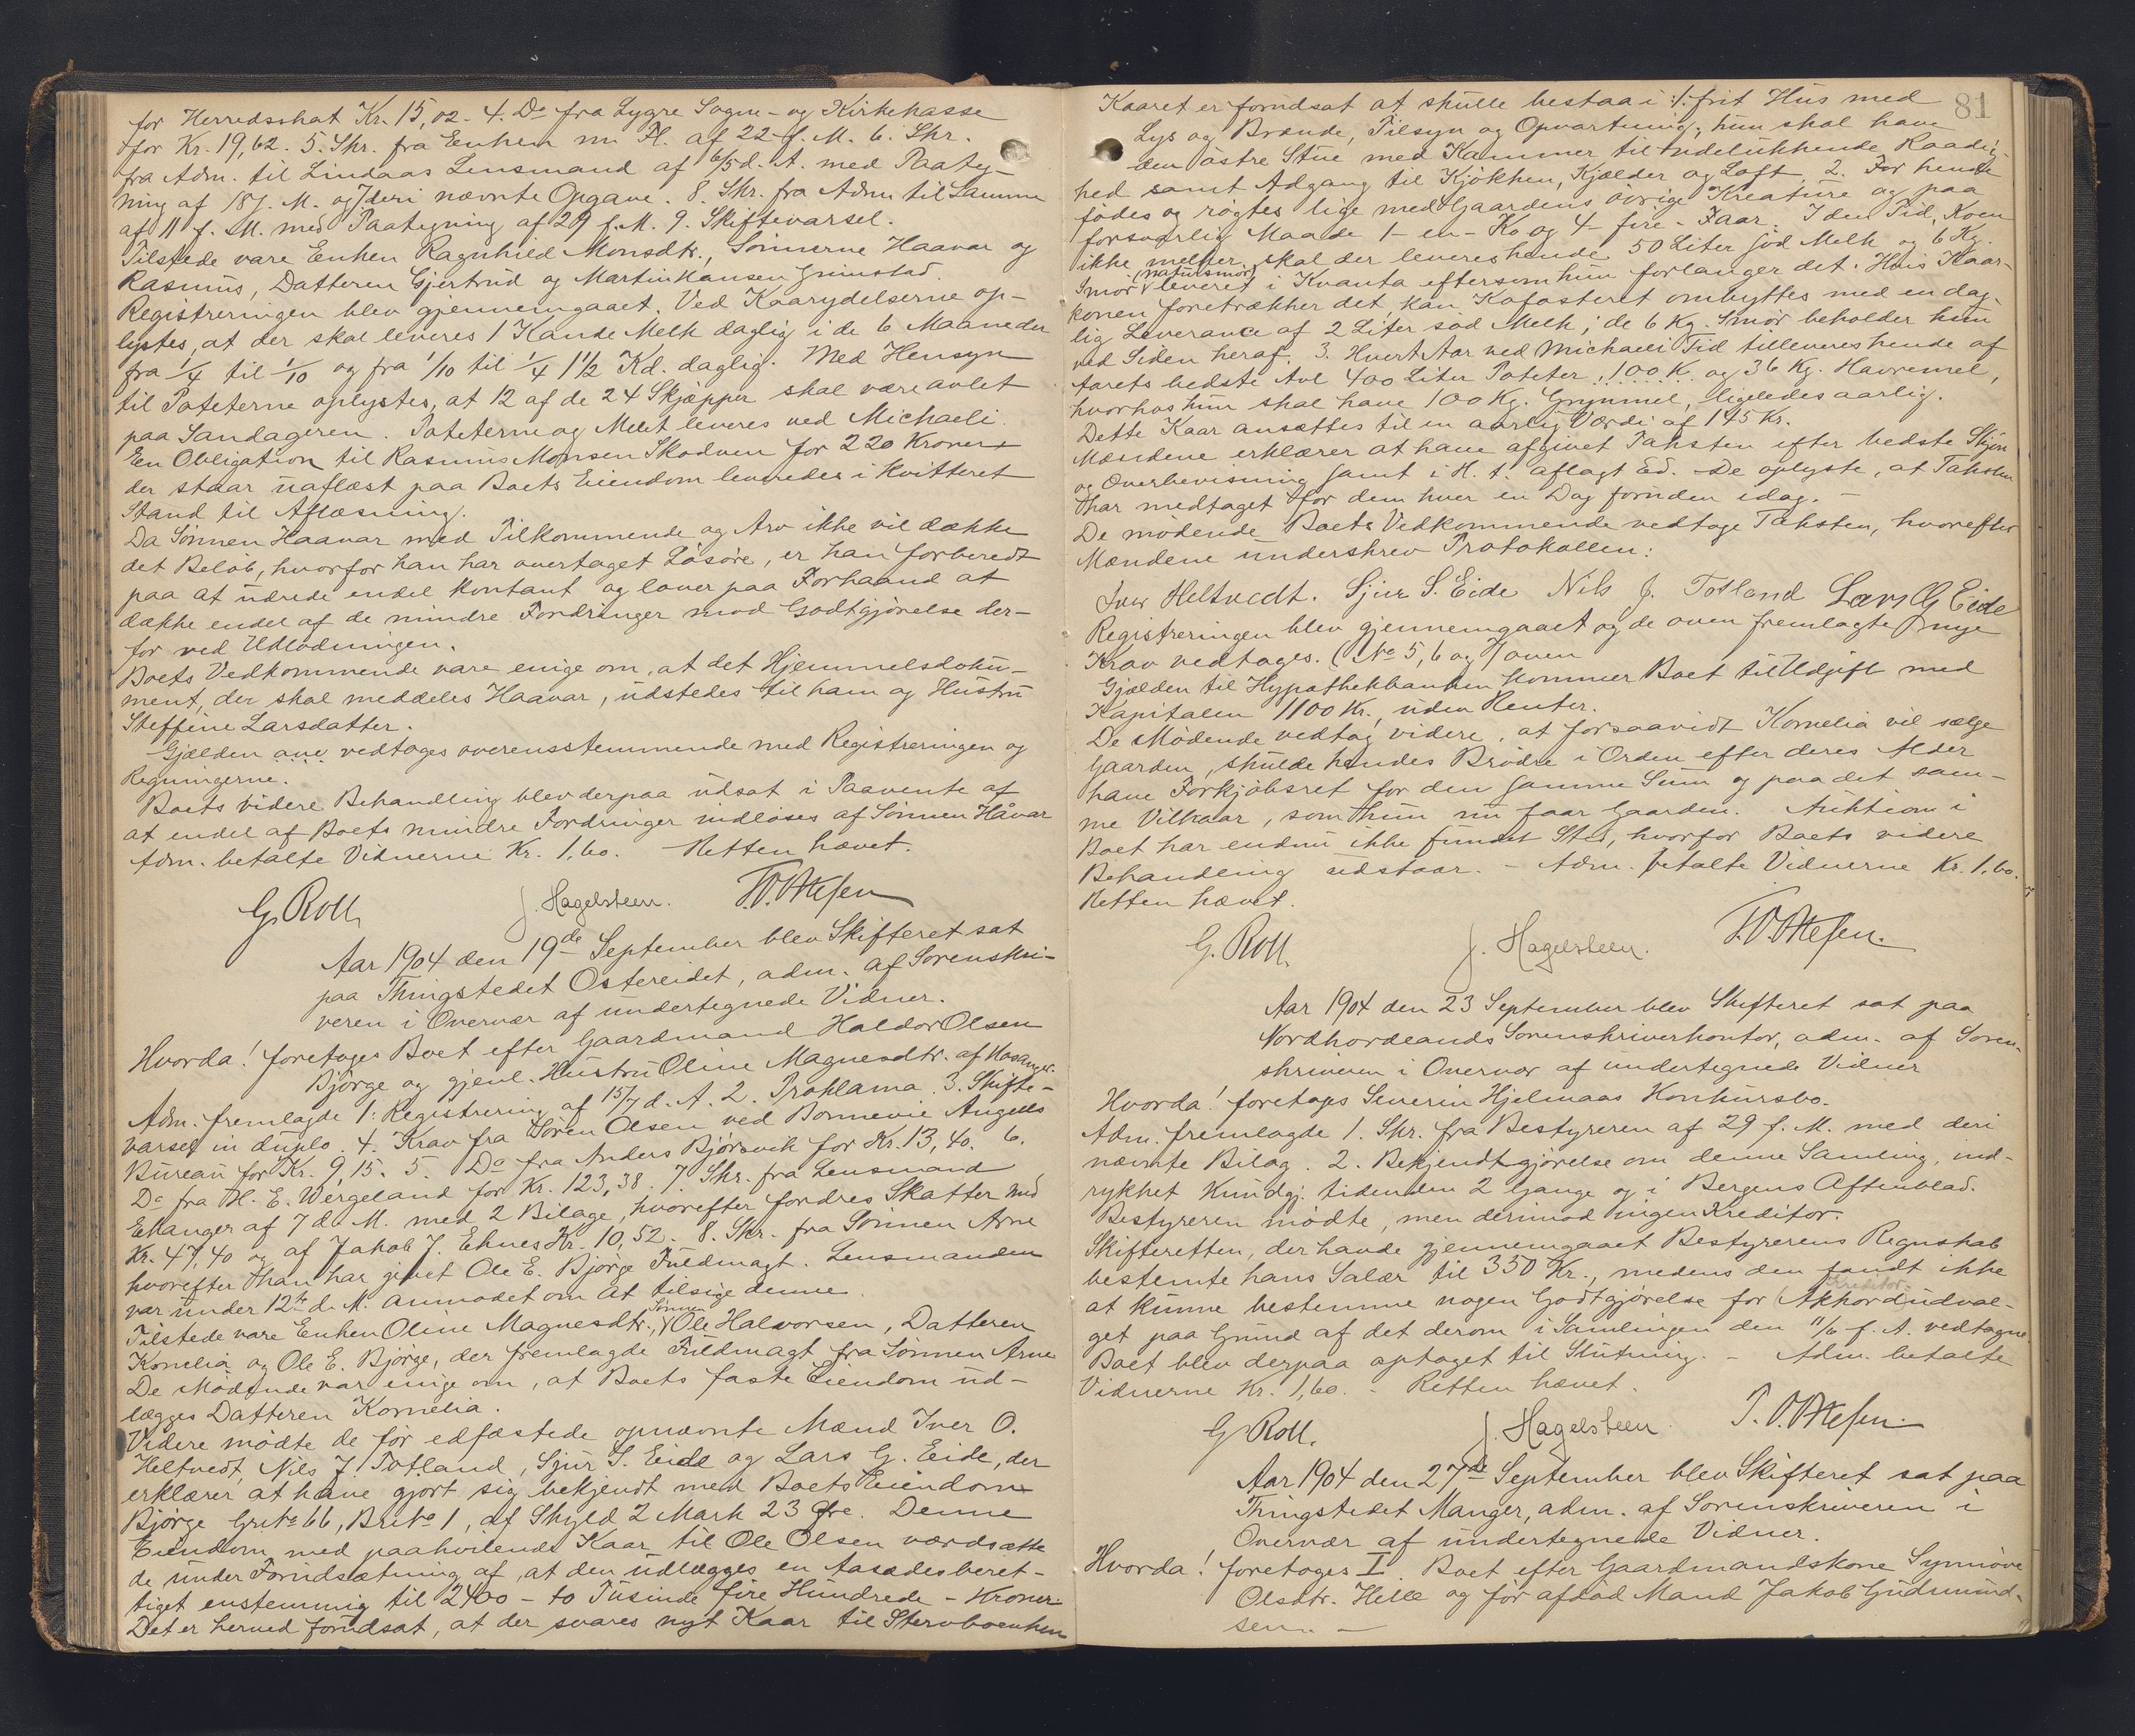 for Herredsskat Kr. 15,02. 4. Do fra Lygre Sogne- og Kirkekasse
for Kr. 19,62. 5. Skr. fra Enken m. Fl. af 22 f. M. 6. Skr.
fra Adm. til Lindaas Lensmand af 6/5 d. A. med Paateg-
ning af 18 f. M. og 7 deri nævnte Opgave. 8. Skr. fra Adm. til Samme
af 11 f. M. med Paategning af 29 f. M. 9. Skiftevarsel.
Tilstede vare Enken Ragnhild Monsdtr., Sønnerne Haavar og
Rasmus, Datteren Gjertrud og Martin Hansen Grimstad.
Registreringen blev gjennemgaaet. Ved Kaarydelserne op-
lystes, at der skal leveres 1 Kande Melk daglig i de 6 Maaneder
fra 1/4 til 1/10 og fra 1/10 til 1/4 1 1/2 Kd. daglig. Med Hensyn
til Poteterne oplystes, at 12 af de 24 Skjæpper skal være avlet
paa Sandageren. Poteterne og Melet leveres ved Michaeli.
En Obligation til Rasmus Monsen Skodven for 220 Kroner
der staar uaflæst paa Boets Eiendom leveredes i kvitteret
Stand til Aflæsning.
Da Sønnen Haavar med Tilkommende og Arv ikke vil dække
det Beløb, hvorfor han har overtaget Løsøre, er han forberedt
paa at udrede endel kontant og lover paa Forhaand at
dække endel af de mindre Fordringer mod Godtgjørelse der-
for ved Udlodningen.
Boets Vedkommende vare enige om, at det Hjemmelsdoku-
ment, der skal meddeles Haavar, udstedes til ham og Hustru
Steffine Larsdatter.
Gjælden ane vedtoges overensstemmende med Registreringen og
Regningerne.
Boets videre Behandling blev derpaa udsat i Paavente af
at endel af Boets mindre Fordringer indløses af Sønnen Håvar
Adm. betalte Vidnerne Kr. 1,60. Retten hævet.
G. Roll J. Hagelsteen. T. O. Ottesen
Aar 1904 den 19de September blev Skifteret sat
paa Thingstedet Ostereidet, adm. af Sorenskri-
veren i Overvær af undertegnede Vidner.
Hvorda! foretoges Boet efter Gaardmand Haldor Olsen
Bjørge og gjenl. Hustru Oline Magnesdtr. af Hosanger.
Adm. fremlagde 1: Registrering af 15/7 d. A. 2. Proklama. 3. Skifte-
varsel in duplo. 4. Krav fra Søren Olsen ved Bonnevie Angells
Bureau for Kr. 9,15. 5. Do fra Anders Bjørsvik for Kr. 13,40. 6.
Do fra H. E. Wergeland for Kr. 123,38. 7. Skr. fra Lensmand
Ekanger af 7 d. M. med 2 Bilage, hvorefter fordres Skatter med
Kr. 47,40 og af Jakob J. Eknes Kr. 10,52. 8. Skr. fra Sønnen Arne
hvorefter han har givet Ole E. Bjørge Fuldmagt. Lensmanden
var under 12te d. M. anmodet om at tilsige denne.
Tilstede vare Enken Oline Magnesdtr., Sønnen Ole Halvorsen, Datteren
Kornelia og Ole E. Bjørge, der fremlagde Fuldmagt fra Sønnen Arne
De Mødende var enige om, at Boets faste Eiendom ud-
lægges Datteren Kornelia.
Videre mødte de før edfæstede opnævnte Mænd Iver O.
Heltvedt, Nils J. Totland, Sjur S. Eide og Lars G. Eide, der
erklærer at have gjort sig bekjendt med Boets Eiendom
Bjørge Grno 66, Brno 1, af Skyld 2 Mark 23 Øre. Denne
Eiendom med paahvilende Kaar til Ole Olsen værdsatte
de under Forudsætning af, at den udlægges en Aasædesberet-
tiget enstemmig til 2400 - to Tusinde fire Hundrede - Kroner.
Det er herved forudsat, at der svares nyt Kaar til Stervboenken
81
Kaaret er forudsat at skulle bestaa i: 1. frit Hus med
Lys og Brænde, Tilsyn og Opvartning; hun skal have
den østre Stue med Kammer til udelukkende Raadig-
hed samt Adgang til Kjøkken, Kjælder og Loft. 2. For hende
fødes og røgtes lige med Gaardens øvrige Kreature og paa
forsvarlig Maade 1 - en - Ko og 4 - fire - Faar. I den Tid, Koen
ikke melker, skal der leveres hende 50 Liter sød Melk og 6 Kg.
Smør (natursmør) leveret i Kvanta eftersom hun forlanger det. Hvis Kaar-
konen foretrækker det, kan Kofosteret ombyttes med en dag-
lig Leverance af 2 Liter sød Melk; de 6 Kg. Smør beholder hun
ved Siden heraf. 3. Hvert Aar ved Michaeli Tid tilleveres hende af
Aarets bedste Avl 400 Liter Poteter, 100 K. og 36 Kg. Havremel,
hvorhos hun skal have 100 Kg. Grynmel, ligeledes aarlig.
Dette Kaar ansættes til en aarlig Værdi af 145 Kr.
Mændene erklærer at have afgivet Taksten efter bedste Skjøn
og Overbevisning samt i H. t. aflagt Ed. De oplyste, at Taksten
har medtaget for dem hver en Dag foruden idag. -
De mødende Boets Vedkommende vedtoge Taksten, hvorefter
Mændene underskrev Protokollen:
Iver Heltvedt. Sjur S. Eide Nils J. Totland Lars G Eide
Registreringen blev gjennemgaaet og de oven fremlagte nye
Krav vedtoges. (No 5, 6 og 7) oven
Gjælden til Hypothekbanken kommer Boet til Udgift med
Kapitalen 1100 Kr., uden Renter.
De Mødende vedtog videre, at forsaavidt Kornelia vil sælge
Gaarden, skulde hendes Brødre i Orden efter deres Alder
have Forkjøbsret for den samme Sum og paa det sam-
me Vilkaar, som hun nu faar Gaarden. Auktion i
Boet har endnu ikke fundet Sted, hvorfor Boets videre
Behandling udstaar. - Adm. betalte Vidnerne Kr. 1,60.
Retten hævet.
G. Roll. J. Hagelsteen. T. O. Ottesen.
Aar 1904 den 23 September blev Skifteret sat paa
Nordhordlands Sorenskriverkontor, adm. af Soren-
skriveren i Overvær af undertegnede Vidner
Hvorda! foretoges Severin Hjelmaas Konkursbo.
Adm. fremlagde 1. Skr. fra Bestyreren af 29 f. M. med deri
nævnte Bilag. 2. Bekjendtgjørelse om denne Samling, ind-
rykket Kundgj. tidenden 2 Gange og i Bergens Aftenblad.
Bestyreren mødte, men derimod ingen Kreditor.
Skifteretten, der havde gjennemgaaet Bestyrerens Regnskab
bestemte hans Salær til 350 Kr., medens den fandt ikke
at kunne bestemme nogen Godtgjørelse for Kreditor- Akkordudval-
get paa Grund af det derom i Samlingen den 11/6 f. A. vedtagne.
Boet blev derpaa optaget til Slutning. - Adm. betalte
Vidnerne Kr. 1,60. - Retten hævet.
G Roll. J. Hagelsteen T. O. Ottesen.
Aar 1904 den 27de September blev Skifteret sat paa
Thingstedet Manger, adm. af Sorenskriveren i
Overvær af undertegnede Vidner.
Hvorda! foretoges I. Boet efter Gaardmandskone Synnøve
Olsdtr. Helle og før afdød Mand Jakob Gudmund-
sen. -